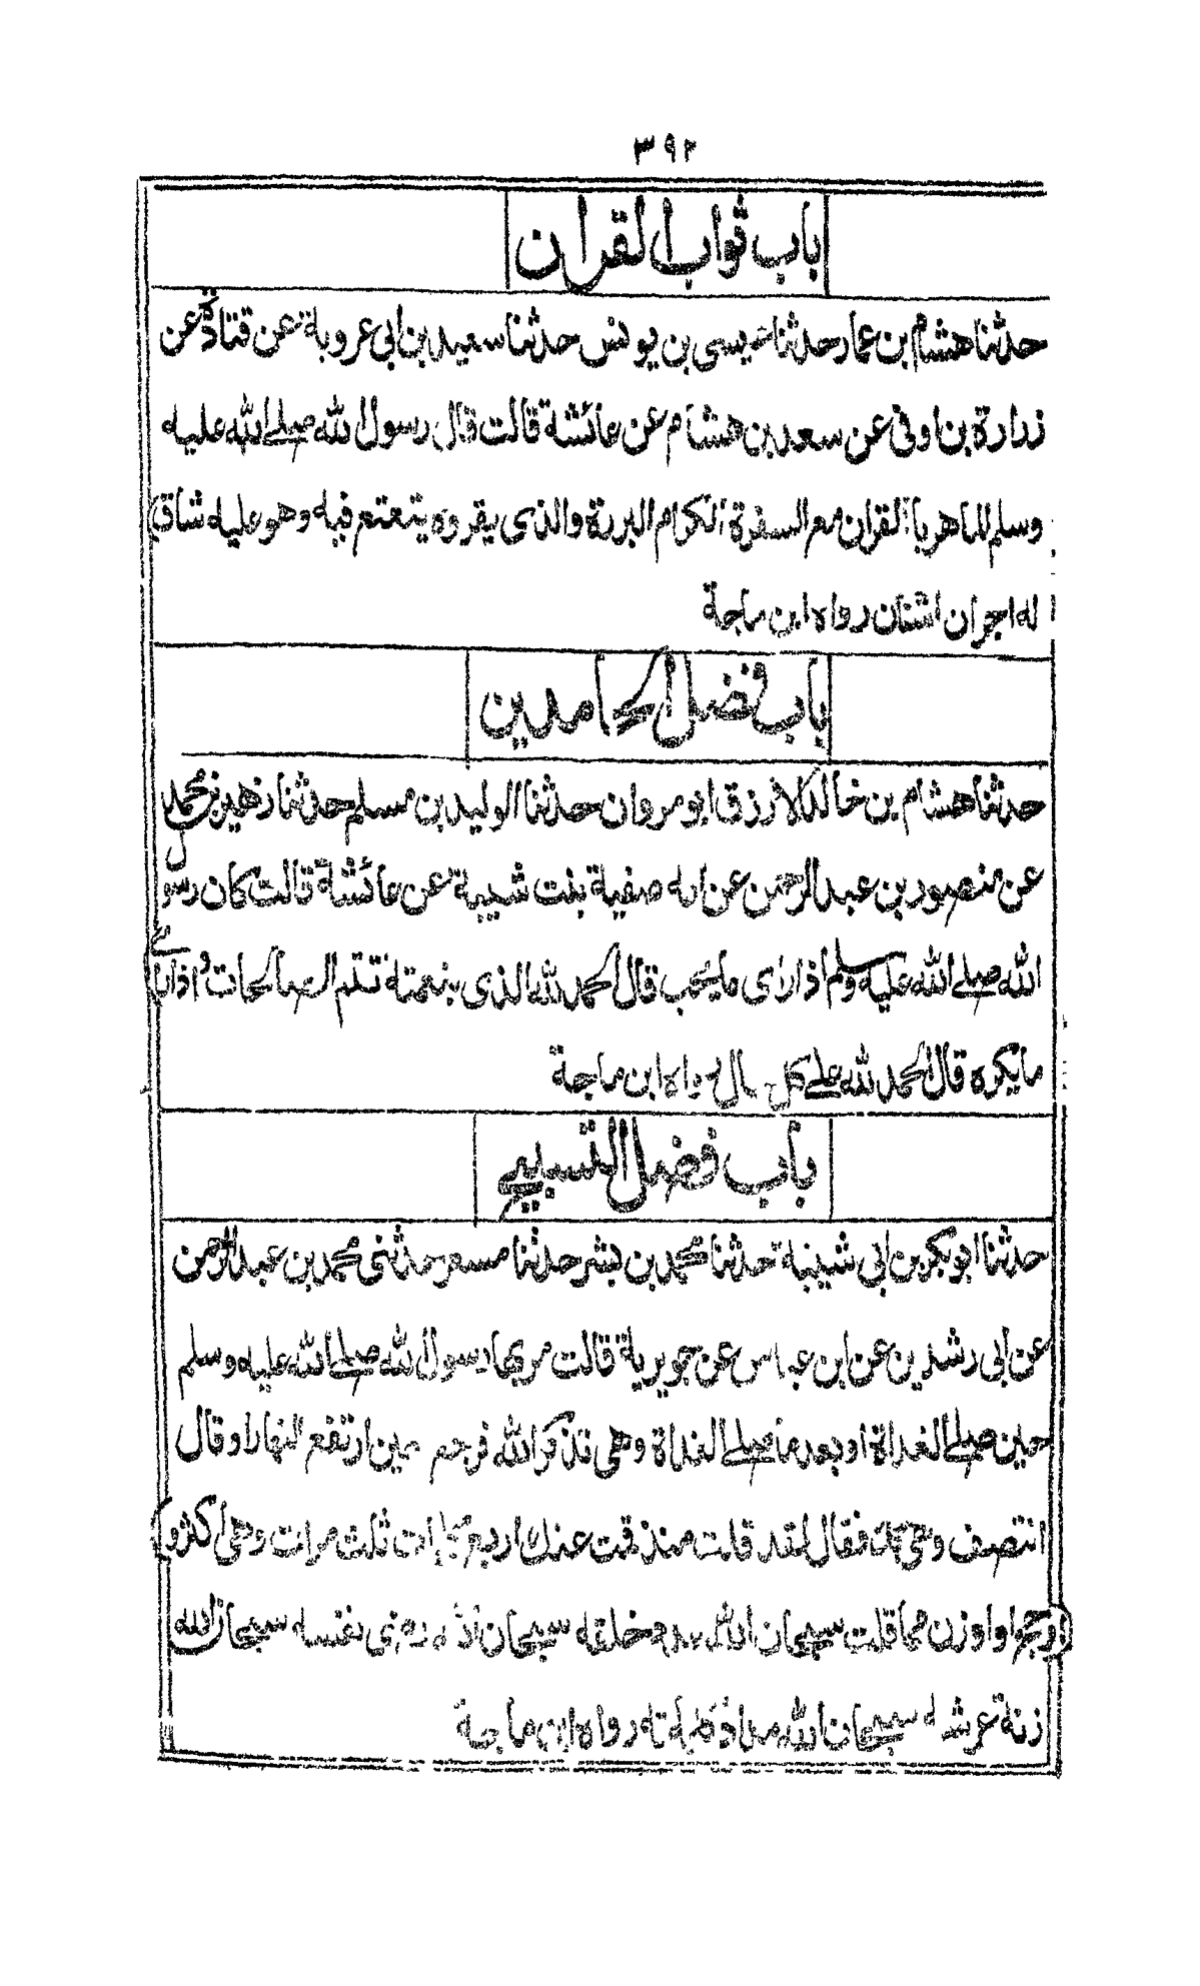 ٣٩٢
باب ثواب القران
حدثنا هشام بن عمار حدثنا عيسى بن يونس حدثنا سعيد بن ابي عروبة عن قتادة عن
زرارة بن اوفى عن سعد بن هشام عن عائشة قالت قال رسول الله صلے الله عليه
وسلم الماهر بالقران مع السفرة الكرام البررة والذى يقروه يتعتع فيه وهو عليه شاق
له اجران اثنان رواه ابن ماجة
باب فضل الحامدين
حدثنا هشام بن خالد الازرق ابو مروان حدثنا الوليد بن مسلم حدثنا زهير بن محمد
عن منصور بن عبد الرحمن عن امه صفية بنت شيبة عن عائشة قالت كان رسول
الله صلے الله عليه وسلم اذا رای ما يحب قال الحمد لله الذى بنعمته تتم الصالحات واذا رائے
ما يكره قال الحمد لله علے كل حال رواه ابن ماجة
باب فضل التسبيح
حدثنا ابو بكر بن ابي شيبة حدثنا محمد بن بشر حدثنا مسعر حدثنى محمد بن عبد الرحمن
عن ابى رشدين عن ابن عباس عن جويرية قالت مر بها رسول الله صلے الله عليه وسلم
حين صلے الغداة او بعد ما صلے الغداة وهى تذكر الله فرجع حين ارتفع النهار او قال
انتصف وهى فقال لقد قلت منذ قمت عنك اربع كلمات ثلث مرات وهى اكثر و
ارجح او اوزن مما قلت سبحان الله عدد خلقه سبحان الله رضى نفسه سبحان الله
زنة عرشه سبحان الله مداد كلماته رواه ابن ماجة